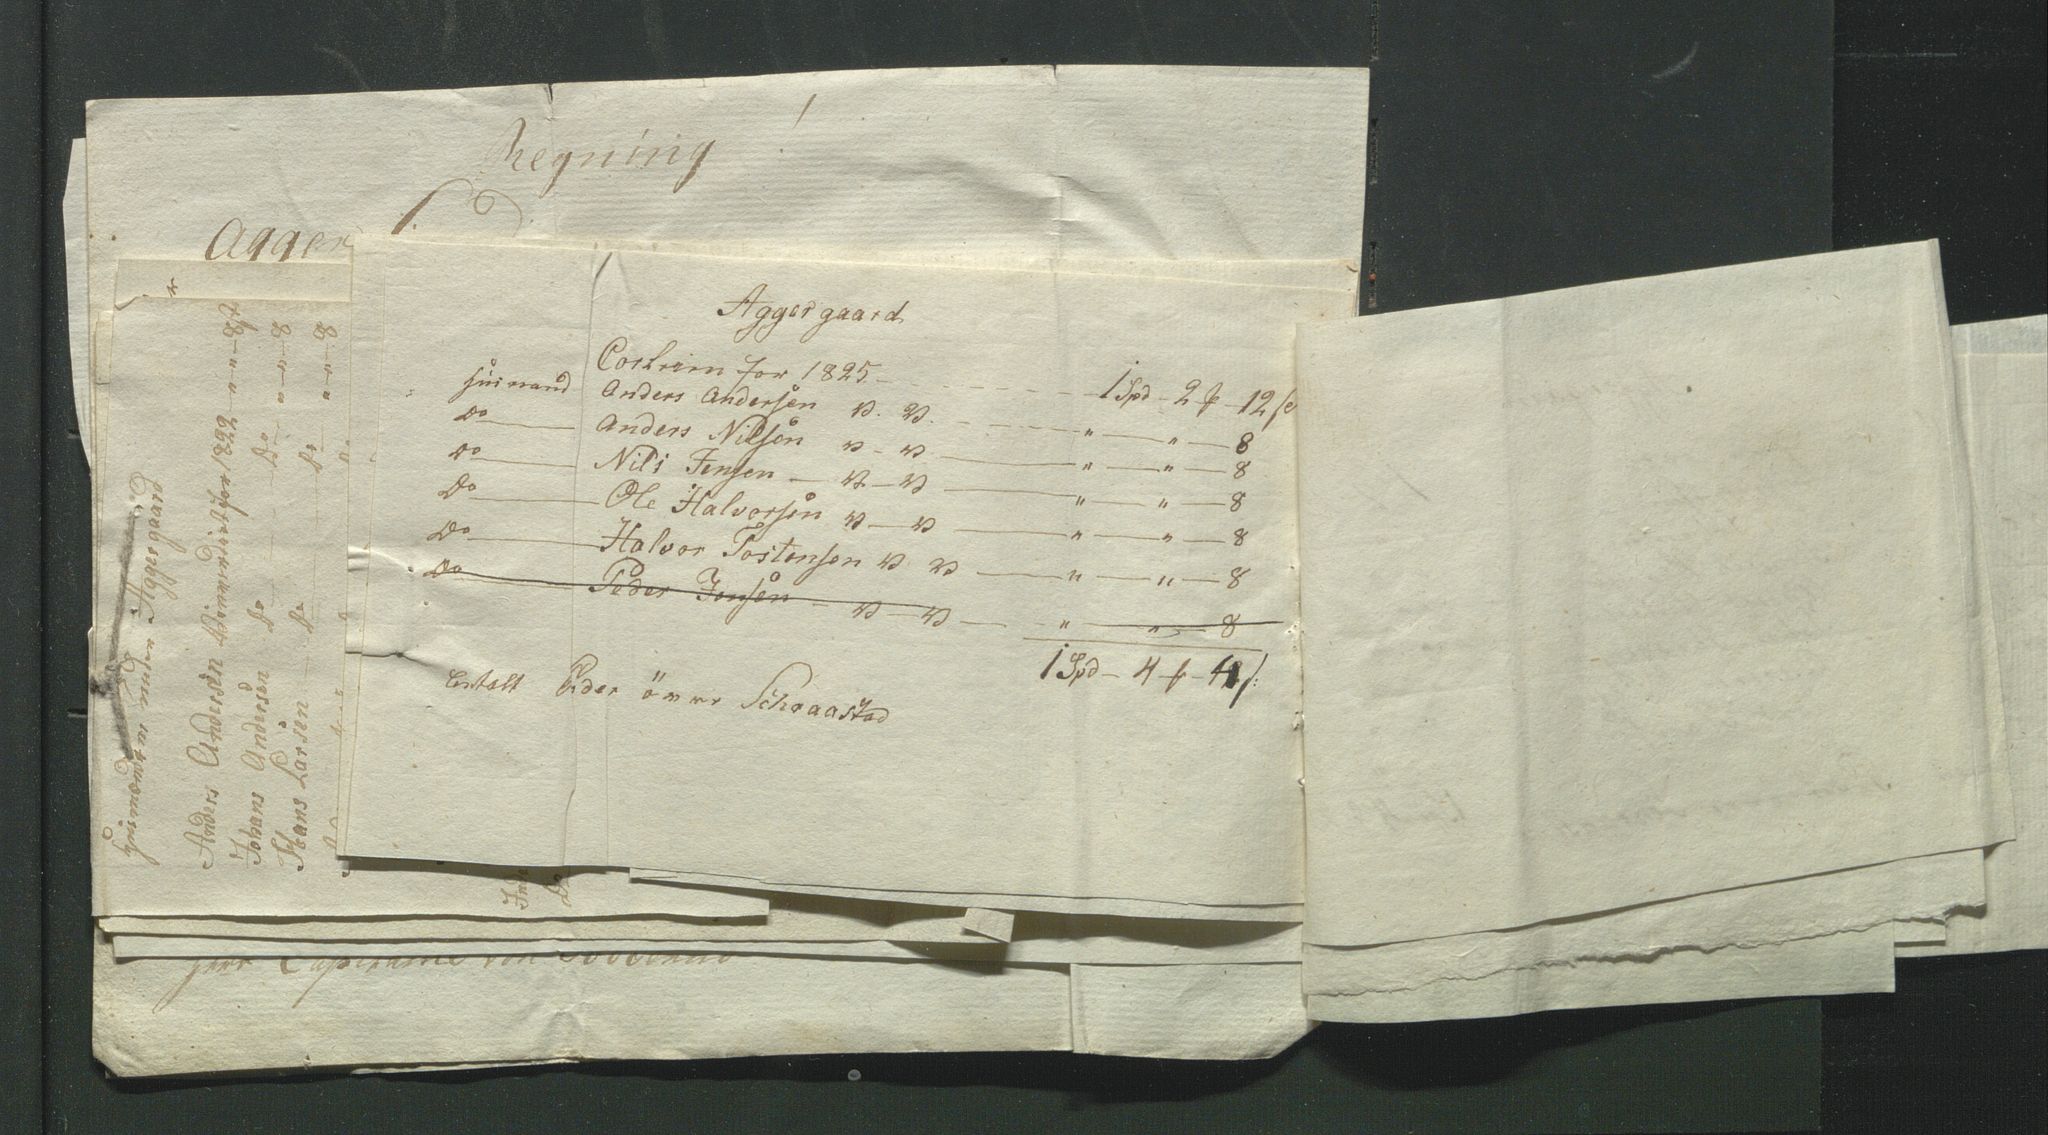 Regning
Agger
Aggersgaard
Corhrim for 1825 — 1 Spd – 2 f – 12 s
Huusmand Anders Andersen D. D. — " — " — 8
Do — Anders Nilsen D – D — " — " — 8
Do — Nils Jensen — D – D — " — " — 8
Do — Ole Halvorsen D – D — " — " — 8
Do — Halvor Tostensen D D — " — " — 8
Do — Peder Jensen — D – D — " — " — 8
1 Spd – 4 f – 4 s:
betalt Peder Schraastad
Huusmænden under Aggersgaard
Anders Andersen for 1822 " – " – 8
Johans Andersen do do " – " – 8
Hans Larsen — do do " – " – 8
Inde
Do
Herr Capitaine von